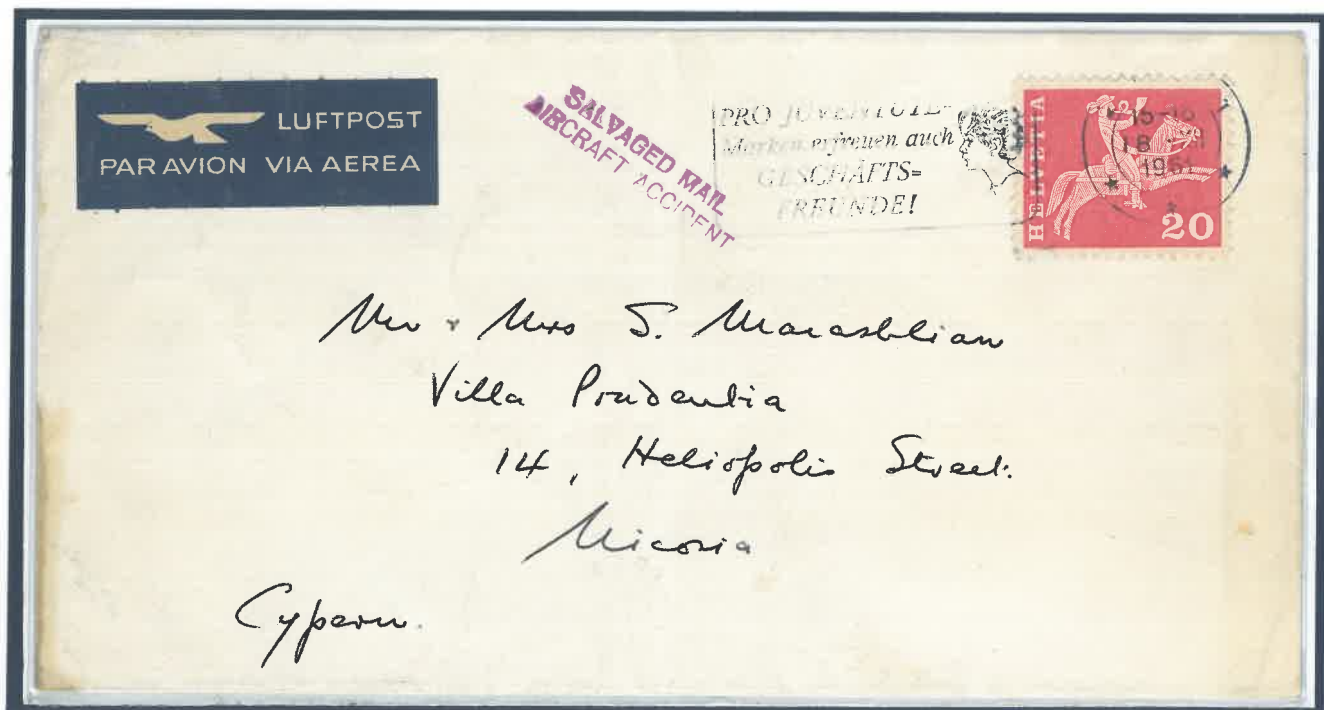 LUFTPOST
PAR AVION VIA AEREA
SALVAGED MAIL
AIRCRAFT ACCIDENT
PRO JUVENTUTE-
Marken erfreuen auch
GESCHÄFTS=
FREUNDE!
HELVETIA
20
15-16
18
1961
Mr + Mrs S. Marashlian
Villa Prudentia
14, Heliopolis Street.
Nicosia
Cypern.